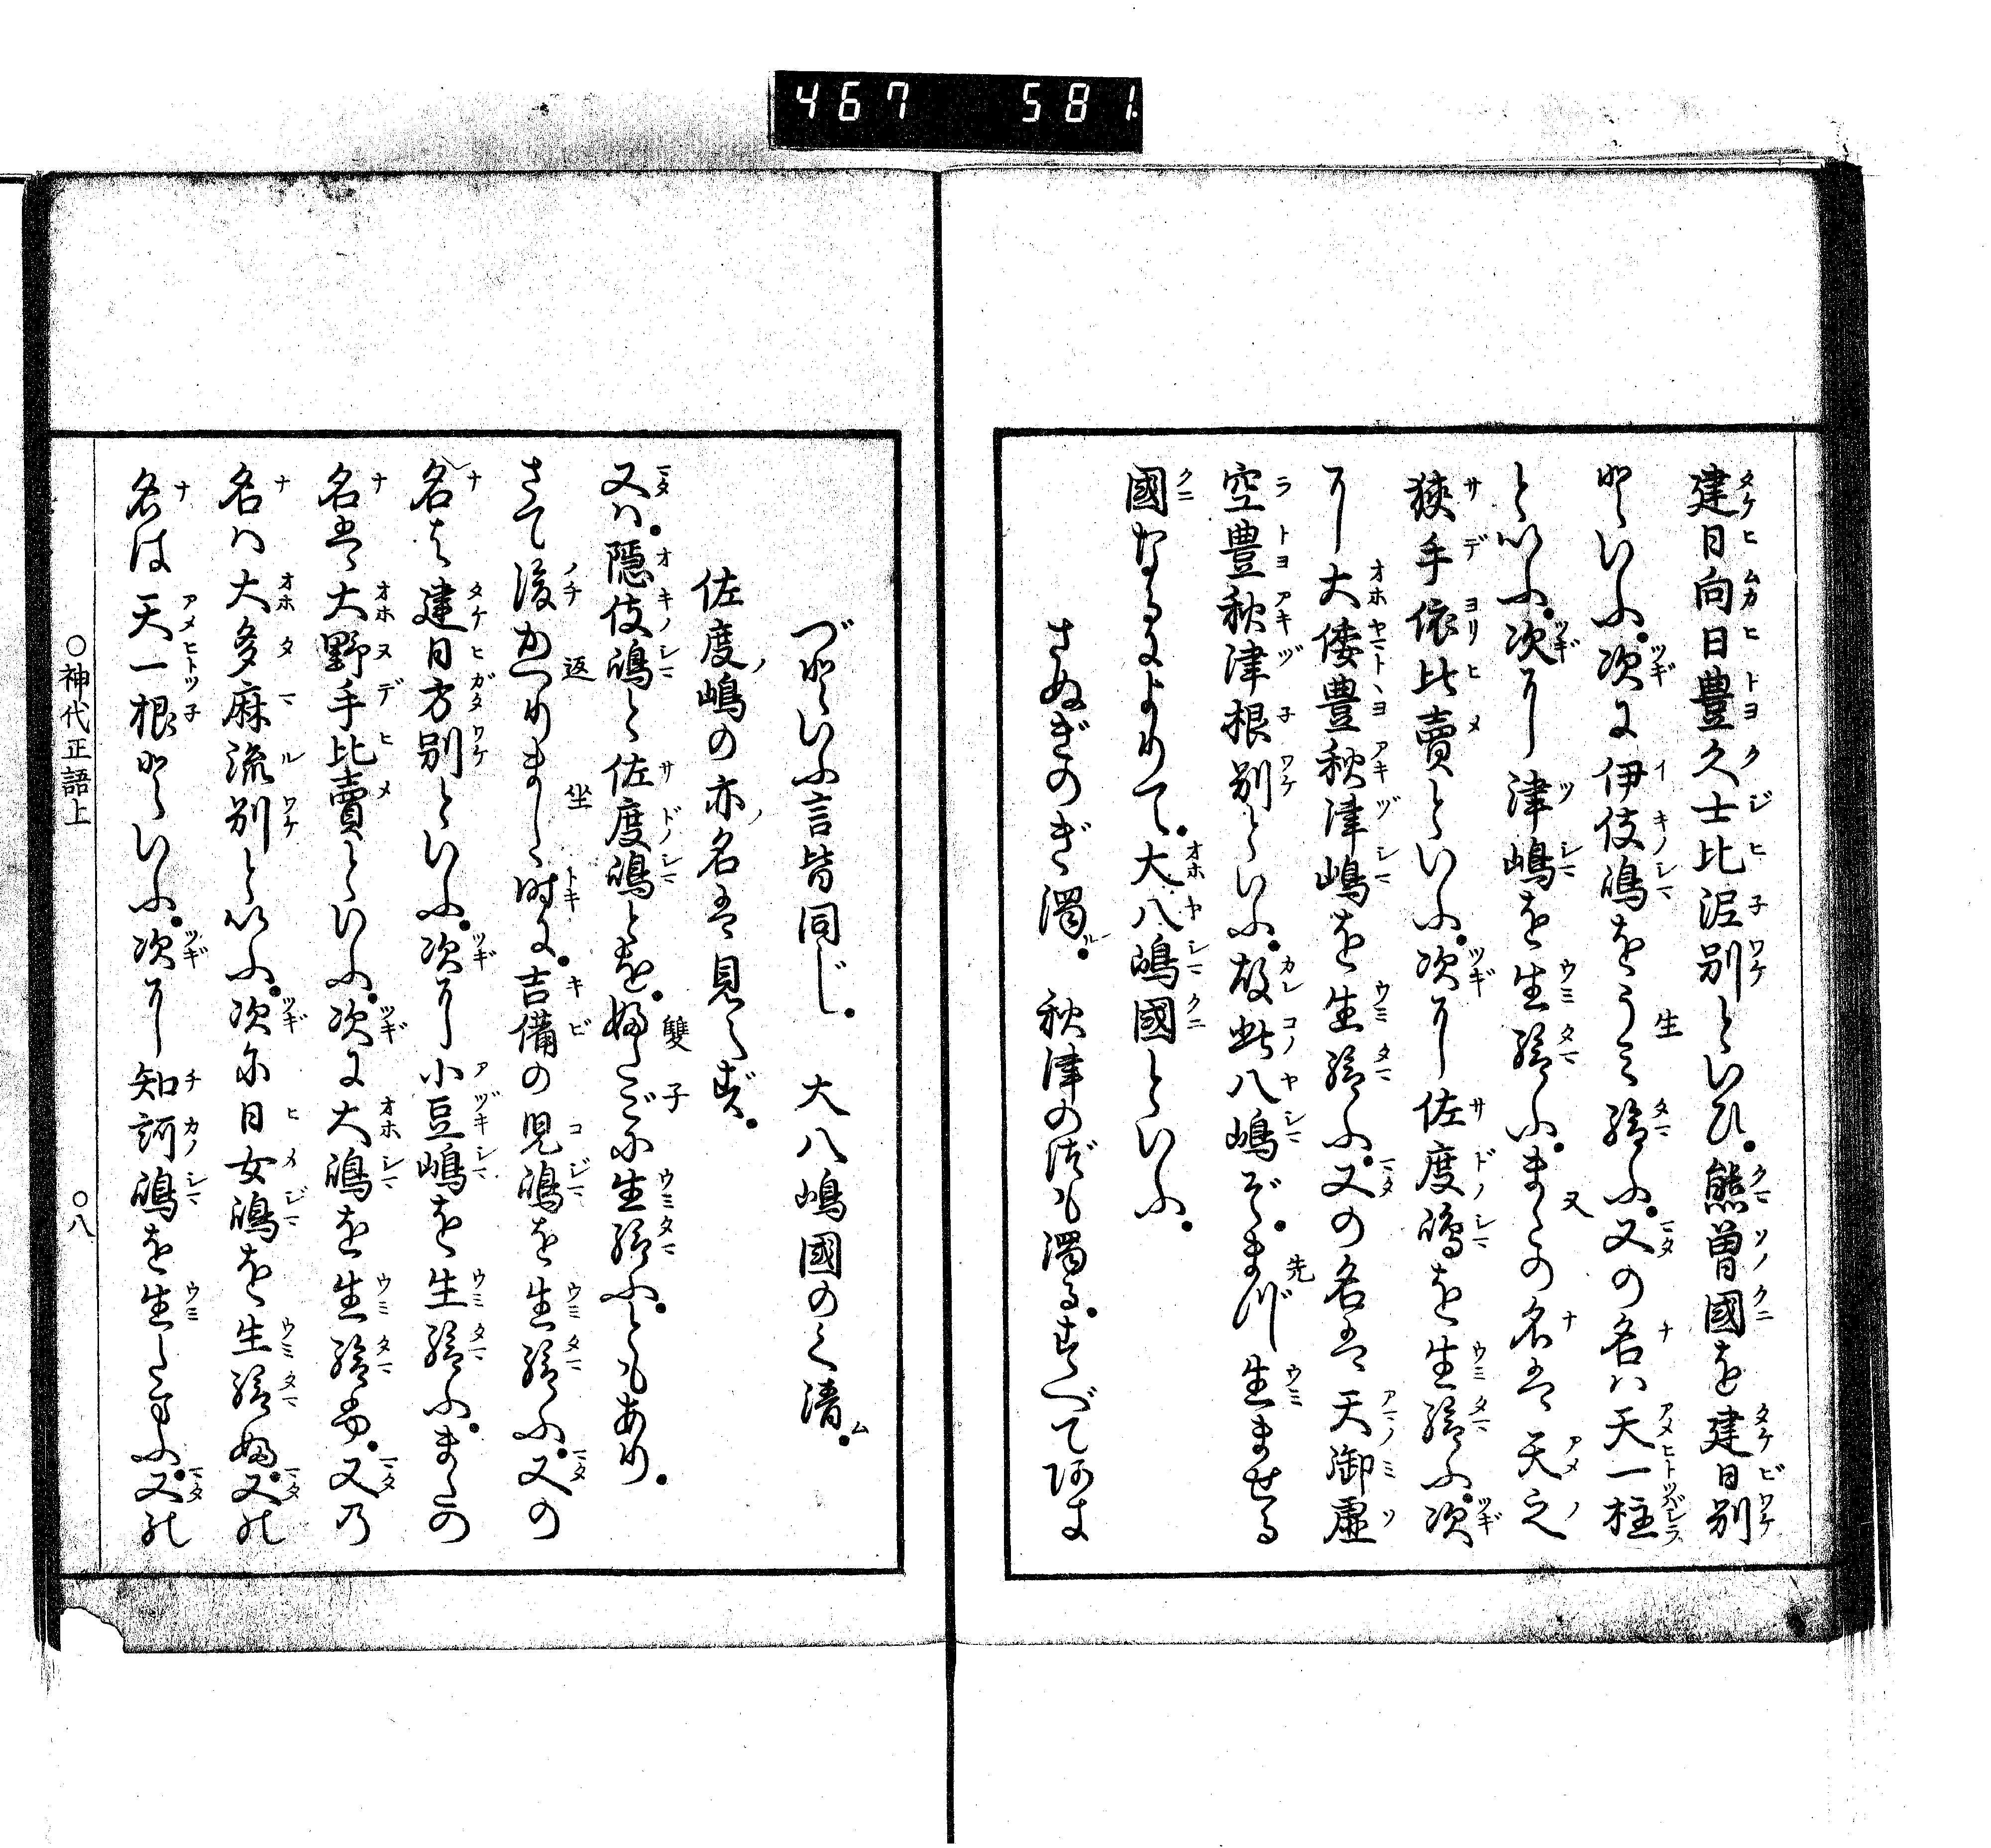 467 581
建日向日豊久士比泥別といひ。熊曽國を建日別
といふ。次に伊伎嶋をうミ給ふ。又の名ハ天一柱
といふ。次に津嶋を生給ふ。またの名は天之
狭手依比賣といふ。次に佐度嶋を生給ふ。次
に大倭豊秋津嶋を生給ふ。又の名は天御虚
空豊秋津根別といふ。故此八嶋ぞ。まづ生ませる
國なるによりて。大八嶋國といふ。
さぬぎのぎ濁ル。 秋津のづも濁る。すべて阿キ
づといふ言皆同じ。 大八嶋國のく清ム。
佐度ノ嶋の亦ノ名は見えず。
又ハ。隠伎嶋と佐度嶋とを。ふたごに生給ふともあり。
さて後かへりましゝ時に。吉備の児嶋を生給ふ。又の
名は建日方別といふ。次に小豆嶋を生給ふ。またの
名は大野手比賣といふ。次に大嶋を生給ふ。又乃
名ハ大多麻流別といふ。次に日女嶋を生給ふ。又の
名は天一根といふ。次に知訶嶋を生たまふ。又の
○神代正語上 ○八